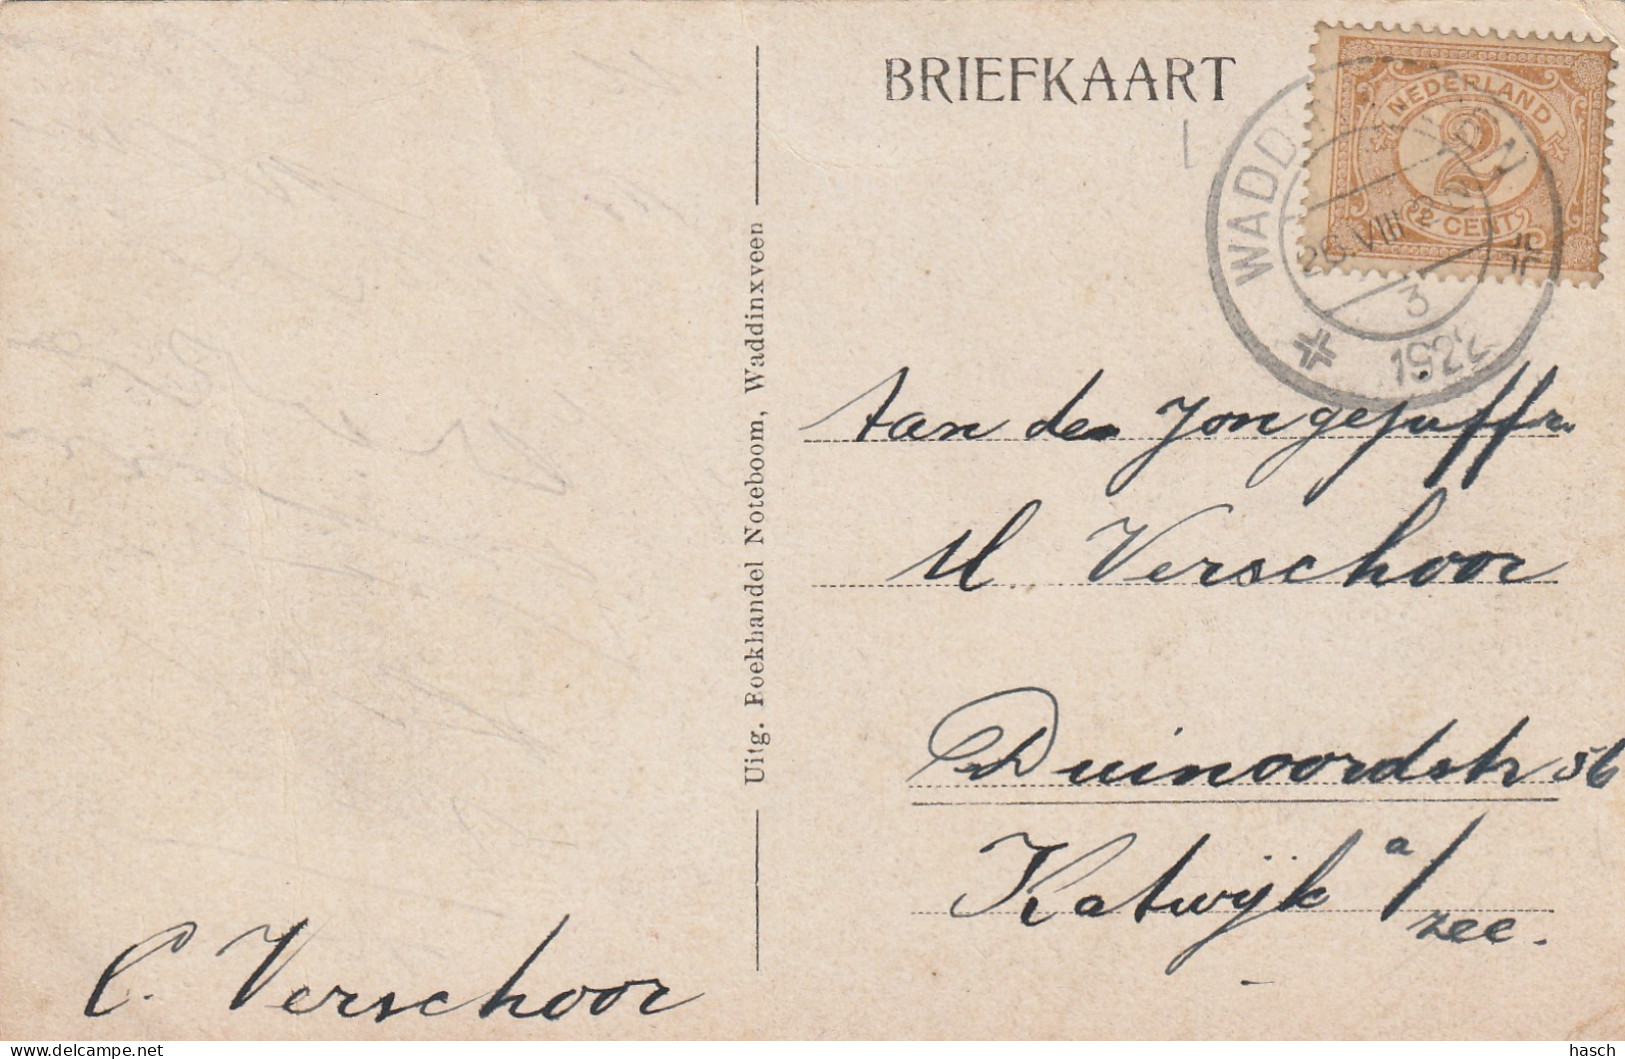 BRIEFKAART
NEDERLAND
2
2 CENT
WADD
26 VIII
3
1922
Aan de Jongejuffr.
M. Verschoor
Duinoordstr 56
Katwijk a/
zee.
C. Verschoor
Uitg. Boekhandel Noteboom, Waddinxveen
delcampe.net
hasch